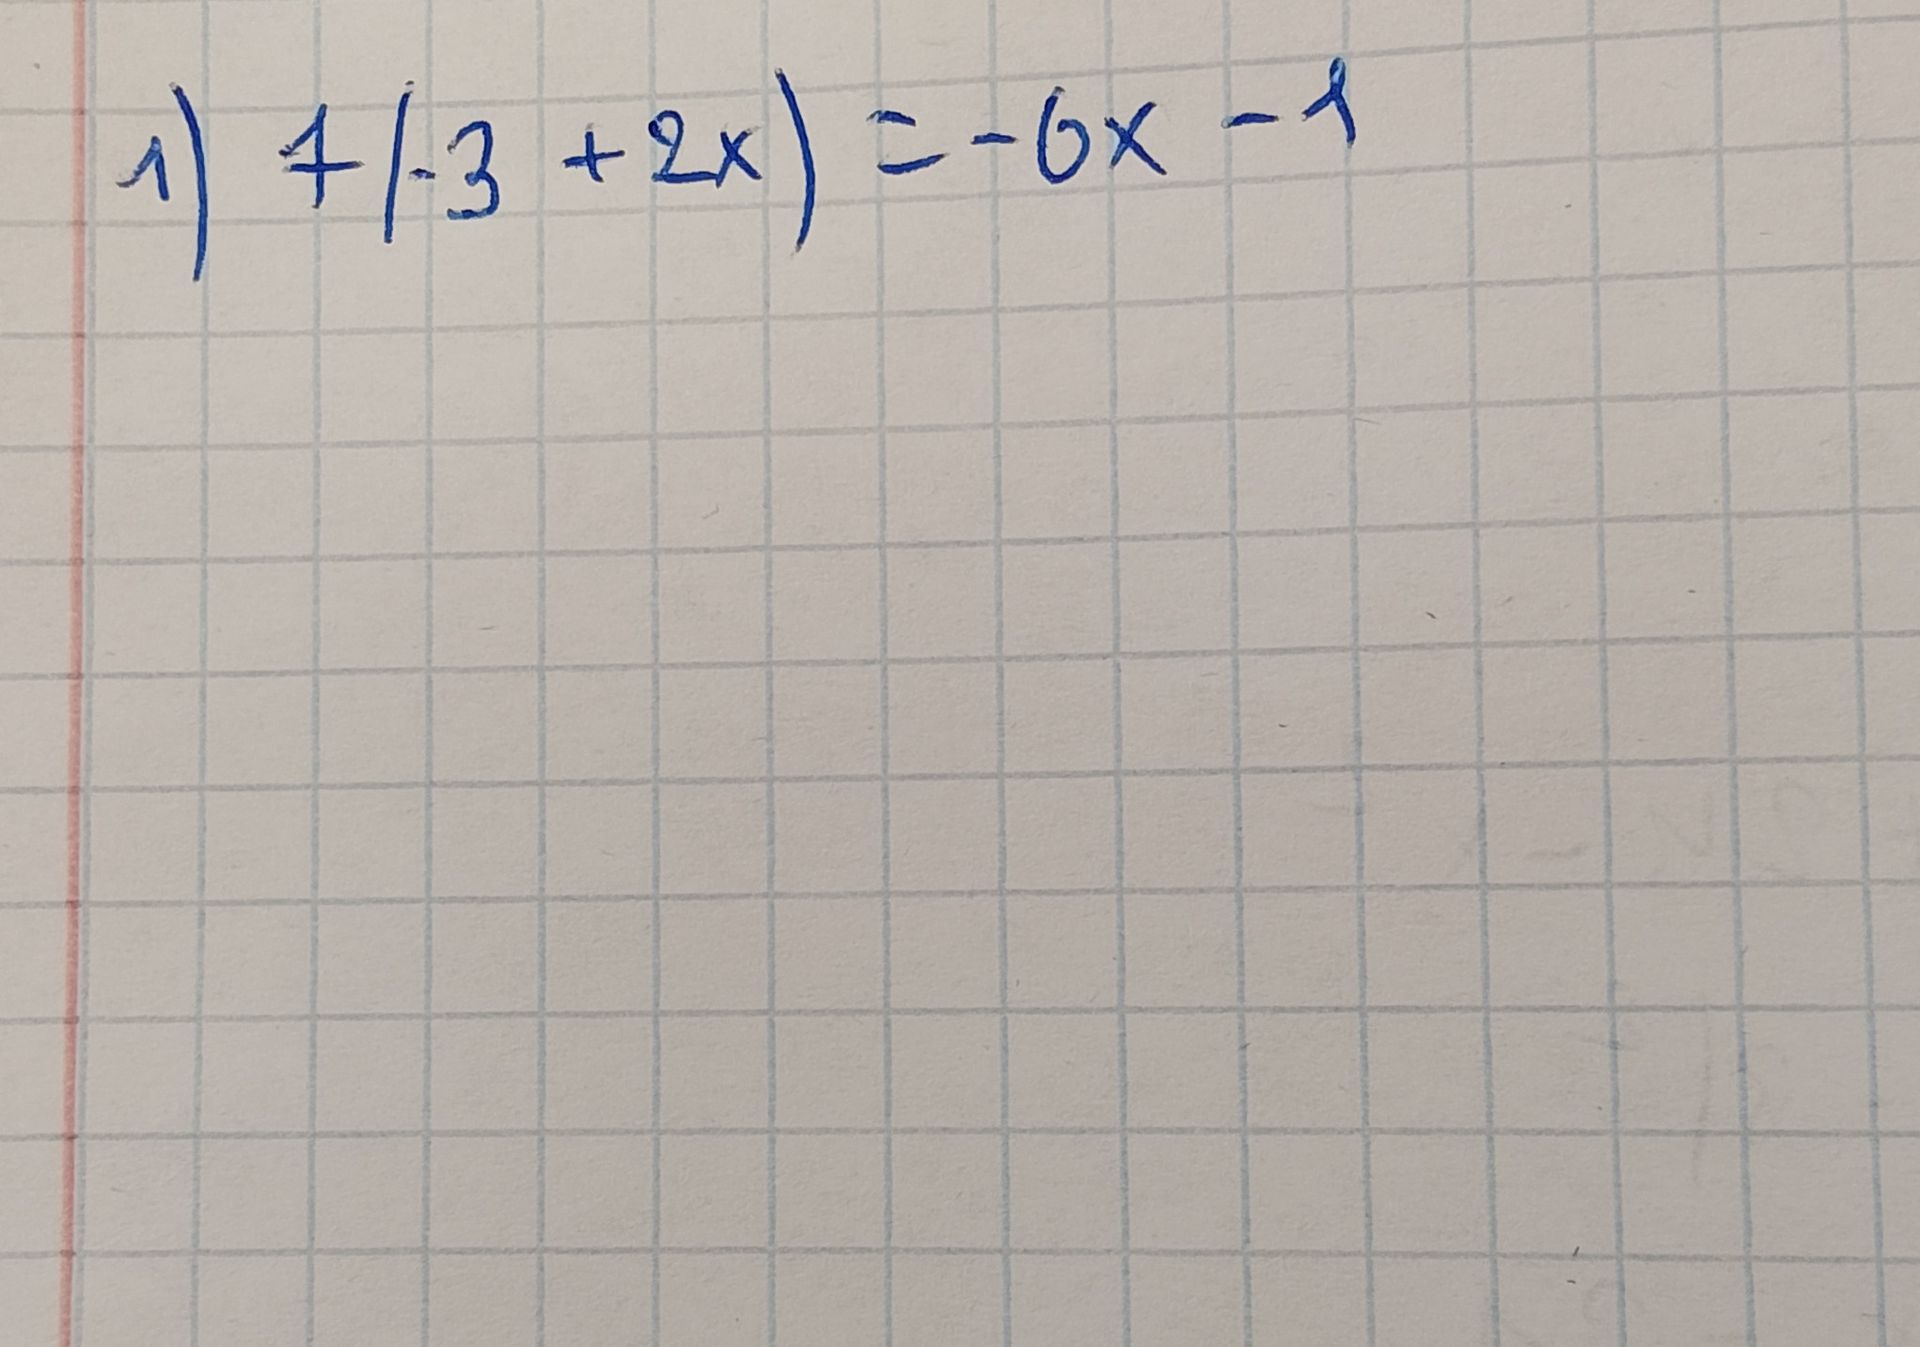 1) 7(-3 + 2x) = -6x - 1